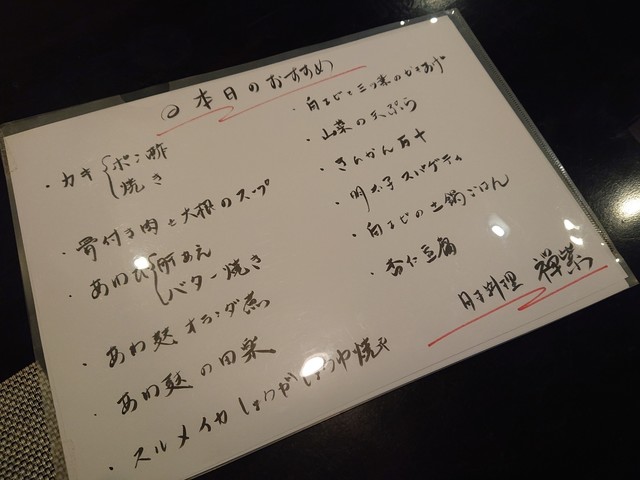 ◎本日のおすすめ
・カキ{ポン酢
焼き
・骨付き肉と大根のスープ
・あわび{酢あえ
バター焼き
・あわ麩オランダ煮
・あわ麩の田楽
・スルメイカしょうがじょうゆ焼き
・白エビと三つ葉のかきあげ
・山菜の天ぷら
・きんかん百十
・明太子スパゲティ
・白エビの土鍋ごはん
・杏仁豆腐
料理